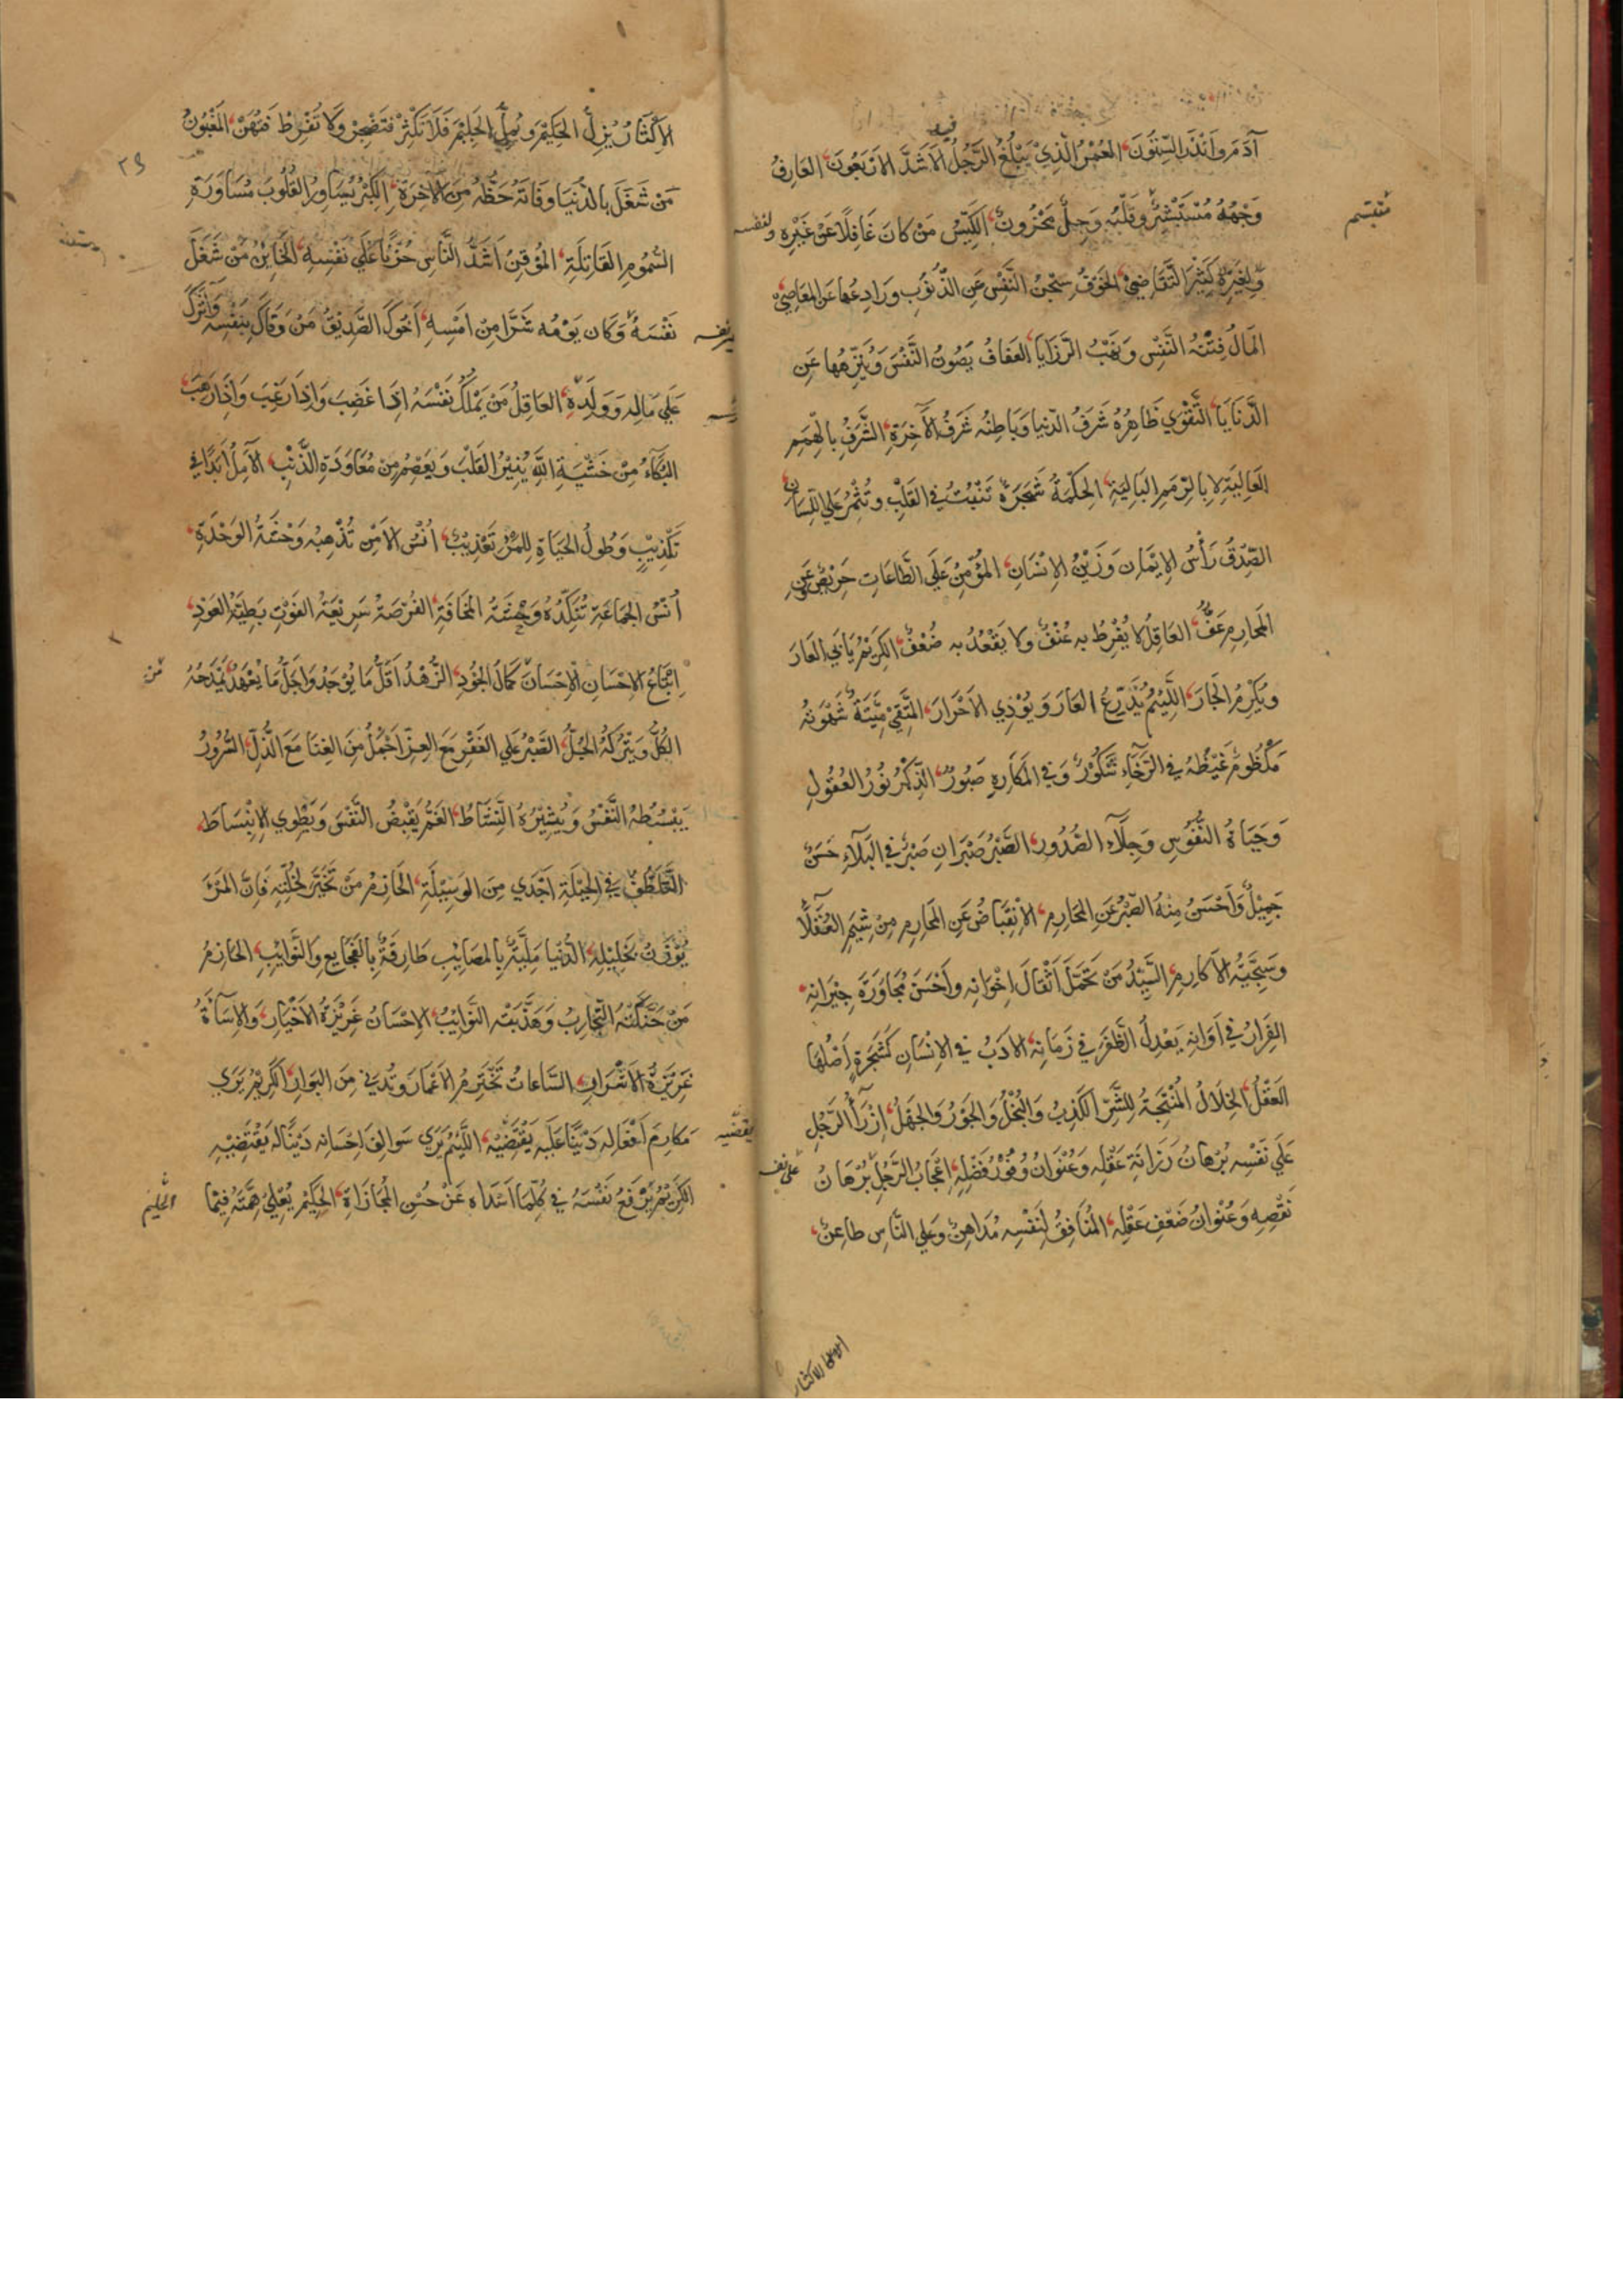 آدَمَ وَأَنْذَرَ السِّتُّونَ العُمْرُ الَّذِي يَبْلُغُ الرَّجُلُ فيه الأَشَدَّ الأَرْبَعُونَ العَارِفُ
وَجْهُهُ مُسْتَبْشِرٌ وَقَلْبُهُ وَجِلٌ مَحْزُونٌ الكَيِّسُ مَنْ كَانَ غَافِلًا عَنْ غَيْرِهِ ولنفسه
كَثِيرَ التَّقَاضِي الخَوْفُ سِجْنُ النَّفْسِ عَنِ الذُّنُوبِ وَرَادِعُهَا عَنِ المَعَاصِي
المَالُ فِتْنَةُ النَّفْسِ وَنَهْبُ الرَّزَايَا العَفَافُ يَصُونُ النَّفْسَ وَيُنَزِّهُهَا عَنِ
الدَّنَايَا التَّقْوَي ظَاهِرُهُ شَرَفُ الدُّنيا وَبَاطِنُه شَرَفُ الآخِرَةِ الشَّرَفُ بِالهِمَمِ
العَالِيَةِ لا بِالرِّمَمِ البَالِيَةِ الحِكْمَةُ شَجَرَةٌ تَنْبُتُ فِي القَلْبِ وتُثْمِرُ عَلَي اللِّسَانِ
الصِّدْقُ رَأْسُ الإِيْمَانِ وَزَيْنُ الإِنْسَانِ المُؤْمِنُ عَلَي الطَّاعَاتِ حَرِيصٌ وعَنِ
المَحَارِمِ عَفٌّ العَاقِلُ لا يُفْرِطُ بِهِ عُنْفٌ ولا يَقْعُدُ بِه ضُعْفٌ الكَرِيْمُ يَأبَي العَارَ
وَيُكْرِمُ الجَارَ اللَّئِيْمُ يَدَّرِعُ العَارَ وَيُؤْذِي الأَحْرَارَ المُتَّقِي مَيِّتَةٌ شَهْوَتُهُ
مَكْظُومٌ غَيْظُهُ فِي الرَّخَاءِ شَكُورٌ وَفِي المَكَارِهِ صَبُورٌ الذِّكْرُ نُورُ العُقُولِ
وَحَيَاةُ النُّفُوسِ وَجِلَاءُ الصُّدُورِ الصَّبْرُ صَبْرَانِ صَبْرٌ فِي البَلَاءِ حَسَنٌ
جَمِيْلٌ وَأَحْسَنُ مِنْهُ الصَّبْرُ عَنِ المَحَارِمِ الإِنْقِبَاضُ عَنِ المَحَارِمِ مِنْ شِيَمِ العُقَلَاءِ
وَسَجِيَّةُ الأَكَارِمِ السَّيِّدُ مَنْ تَحَمَّلَ أَثْقَالَ إِخْوَانِهِ وَأَحْسَنَ مُجَاوَرَةَ جِيْرَانِهِ
الفِرَارُ فِي أَوَانِهِ يَعْدِلُ الظَّفَرَ فِي زَمَانِهِ الأَدَبُ فِي الإِنْسَانِ كَشَجَرَةٍ أَصْلُهَا
العَقْلُ الخِلَالُ المُنْتِجَةُ لِلشَّرِّ الكَذِبُ وَالبُخْلُ وَالجَوْرُ وَالجَهْلُ إِزْرَاءُ الرَّجُلِ
عَلَي نَفْسِه بُرْهَانُ رَزَانَةِ عَقْلِهِ وَعُنْوَانُ وُفُورِ فَضْلِهِ إِعْجَابُ الرَّجُلِ بُرْهَانُ
نَقْصِهِ وَعُنْوَانُ ضَعْفِ عَقْلِهِ المُنَافِقُ لِنَفْسِهِ مُدَاهِنٌ وَعَلَي النَّاسِ طَاعِنٌ
الإِكْثَارُ يُزِلُّ الحَكِيْمَ وَيُمِلُّ الحَلِيْمَ فَلَا تُكْثِرْ فَتُضْجِرْ وَلَا تُفَرِّطْ فَتُهَنْ المَغْبُونُ
٢٩
مَنْ شَغَلَ بِالدُّنْيَا وَفَاتَهُ حَظُّهُ مِنَ الآخِرَةِ الكِبْرُ يُسَاوِرُ القُلُوبَ مُسَاوَرَةَ
السُّمُومِ القَاتِلَةِ المُؤْقِنُ أَشَدُّ النَّاسِ حُزْنًا عَلَي نَفْسِهِ الخَايِنُ مَنْ شَغَلَ
نَفْسَهُ وَكَانَ يَوْمُه شَرًّا مِنْ أَمْسِهِ أَخُوكَ الصَّدِيْقُ مَنْ وَقَاكَ بِنَفْسِهِ وَآثَرَكَ
عَلَي مَالِهِ وَوَلَدِهِ العَاقِلُ مَنْ يَمْلِكُ نَفْسَهُ إِذَا غَضِبَ وَإِذَا رَغِبَ وَإِذَا رَهِبَ
البُكَاءُ مِنْ خَشْيَةِ اللَّهِ يُنِيْرُ القَلْبَ وَيَعْصِمُ مِنْ مُعَاوَدَةِ الذَّنْبِ الأَمَلُ أَبَدًا فِي
تَكْذِيْبٍ وَطُولُ الحَيَاةِ لِلمَرْءِ تَعْذِيْبٌ أُنْسُ الأَمْنِ تُذْهِبُه وَحْشَةُ الوَحْدَةِ
أُنْسُ الجَمَاعَةِ تُنَكِّدُهُ وَحْشَةُ المَخَافَةِ الفُرْصَةُ سَرِيْعَةُ الفَوْتِ بَطِيئَةُ العَوْدِ
إِتْبَاعُ الإِحْسَانِ بالإِحْسَانِ كَمَالُ الجُودِ الزُّهْدُ أَقَلُّ مَا يُوْجَدُ وَأَجَلُّ مَا يُعْهَدُ يَمْدَحُهُ
الكُلُّ وَيَتْرُكُهُ الجُلُّ الصَّبْرُ عَلَي الفَقْرِ مَعَ العِزِّ أَجْمَلُ مِنَ الغِنَا مَعَ الذُّلِّ السُّرُورُ
يَبْسُطُ النَّفْسَ وَيُثِيْرُ النَّشَاطَ الغَمُّ يَقْبِضُ النَّفْسَ وَيَطْوِي الإِنْبِسَاطَ
التَّلَطُّفُ فِي الحِيْلَةِ أَجْدَي مِنَ الوَسِيْلَةِ الحَازِمُ مَنْ تَخَيَّرَ لِخُلَّتِهِ فَإِنَّ المَرْءَ
يُوْزَنُ بِخَلِيْلِهِ الدُّنْيَا مَلِيَّةٌ بِالمَصَايِبِ طَارِقَةٌ بِالفَجَايِعِ وَالنَّوَايِبِ الحَازِمُ
مَنْ حَنَّكَتْهُ التَّجَارِبُ وَهَذَّبَتْهُ النَّوَايِبُ الإِحْسَانُ غَرِيْزَةُ الأَخْيَارِ وَالإِسَاءَةُ
غَرِيْزَةُ الأَشْرَارِ السَّاعَاتُ تَخْتَرِمُ الأَعْمَارَ وَتُدْنِي مِنَ البَوَارِ الكَرِيْمُ يَرَي
مَكَارِمَ أَفْعَالِهِ دَيْنًا عَلَيْهِ يَقْضِيْهِ اللَّئِيْمُ يَرَي سَوَالِفَ إِحْسَانِهِ دَيْنًا لَهُ يَقْتَضِيْهِ
الكَرِيْمُ يَرْفَعُ نَفْسَهُ فِي كُلِّمَا أَسْدَاهُ عَنْ حُسْنِ المُجَازَاةِ الحَكِيْمُ يُعْلِي هِمَّتَهُ فِيْمَا